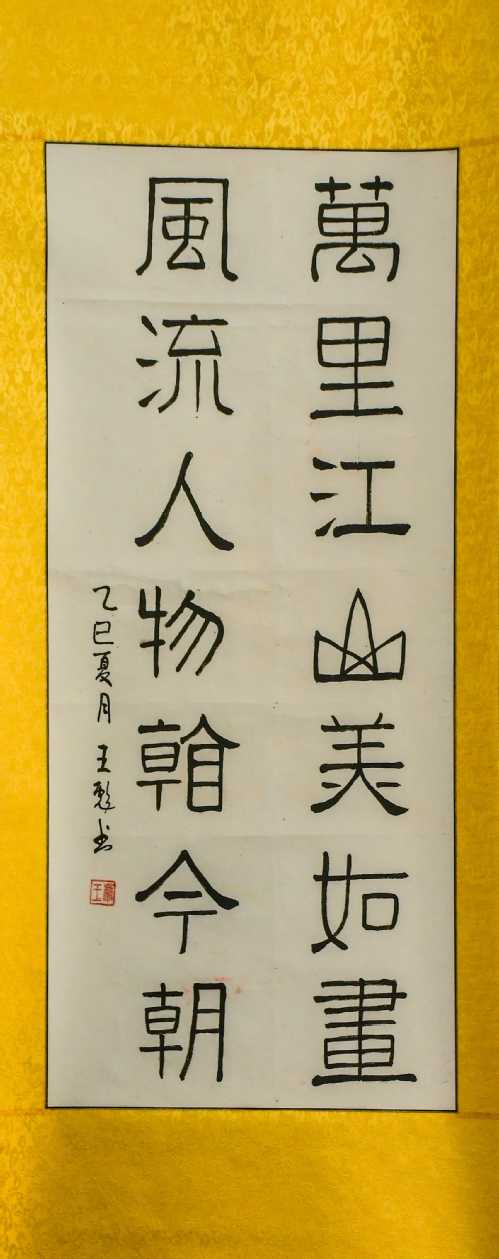 萬里江山美如畫
風流人物看今朝
乙巳夏月 王彪书